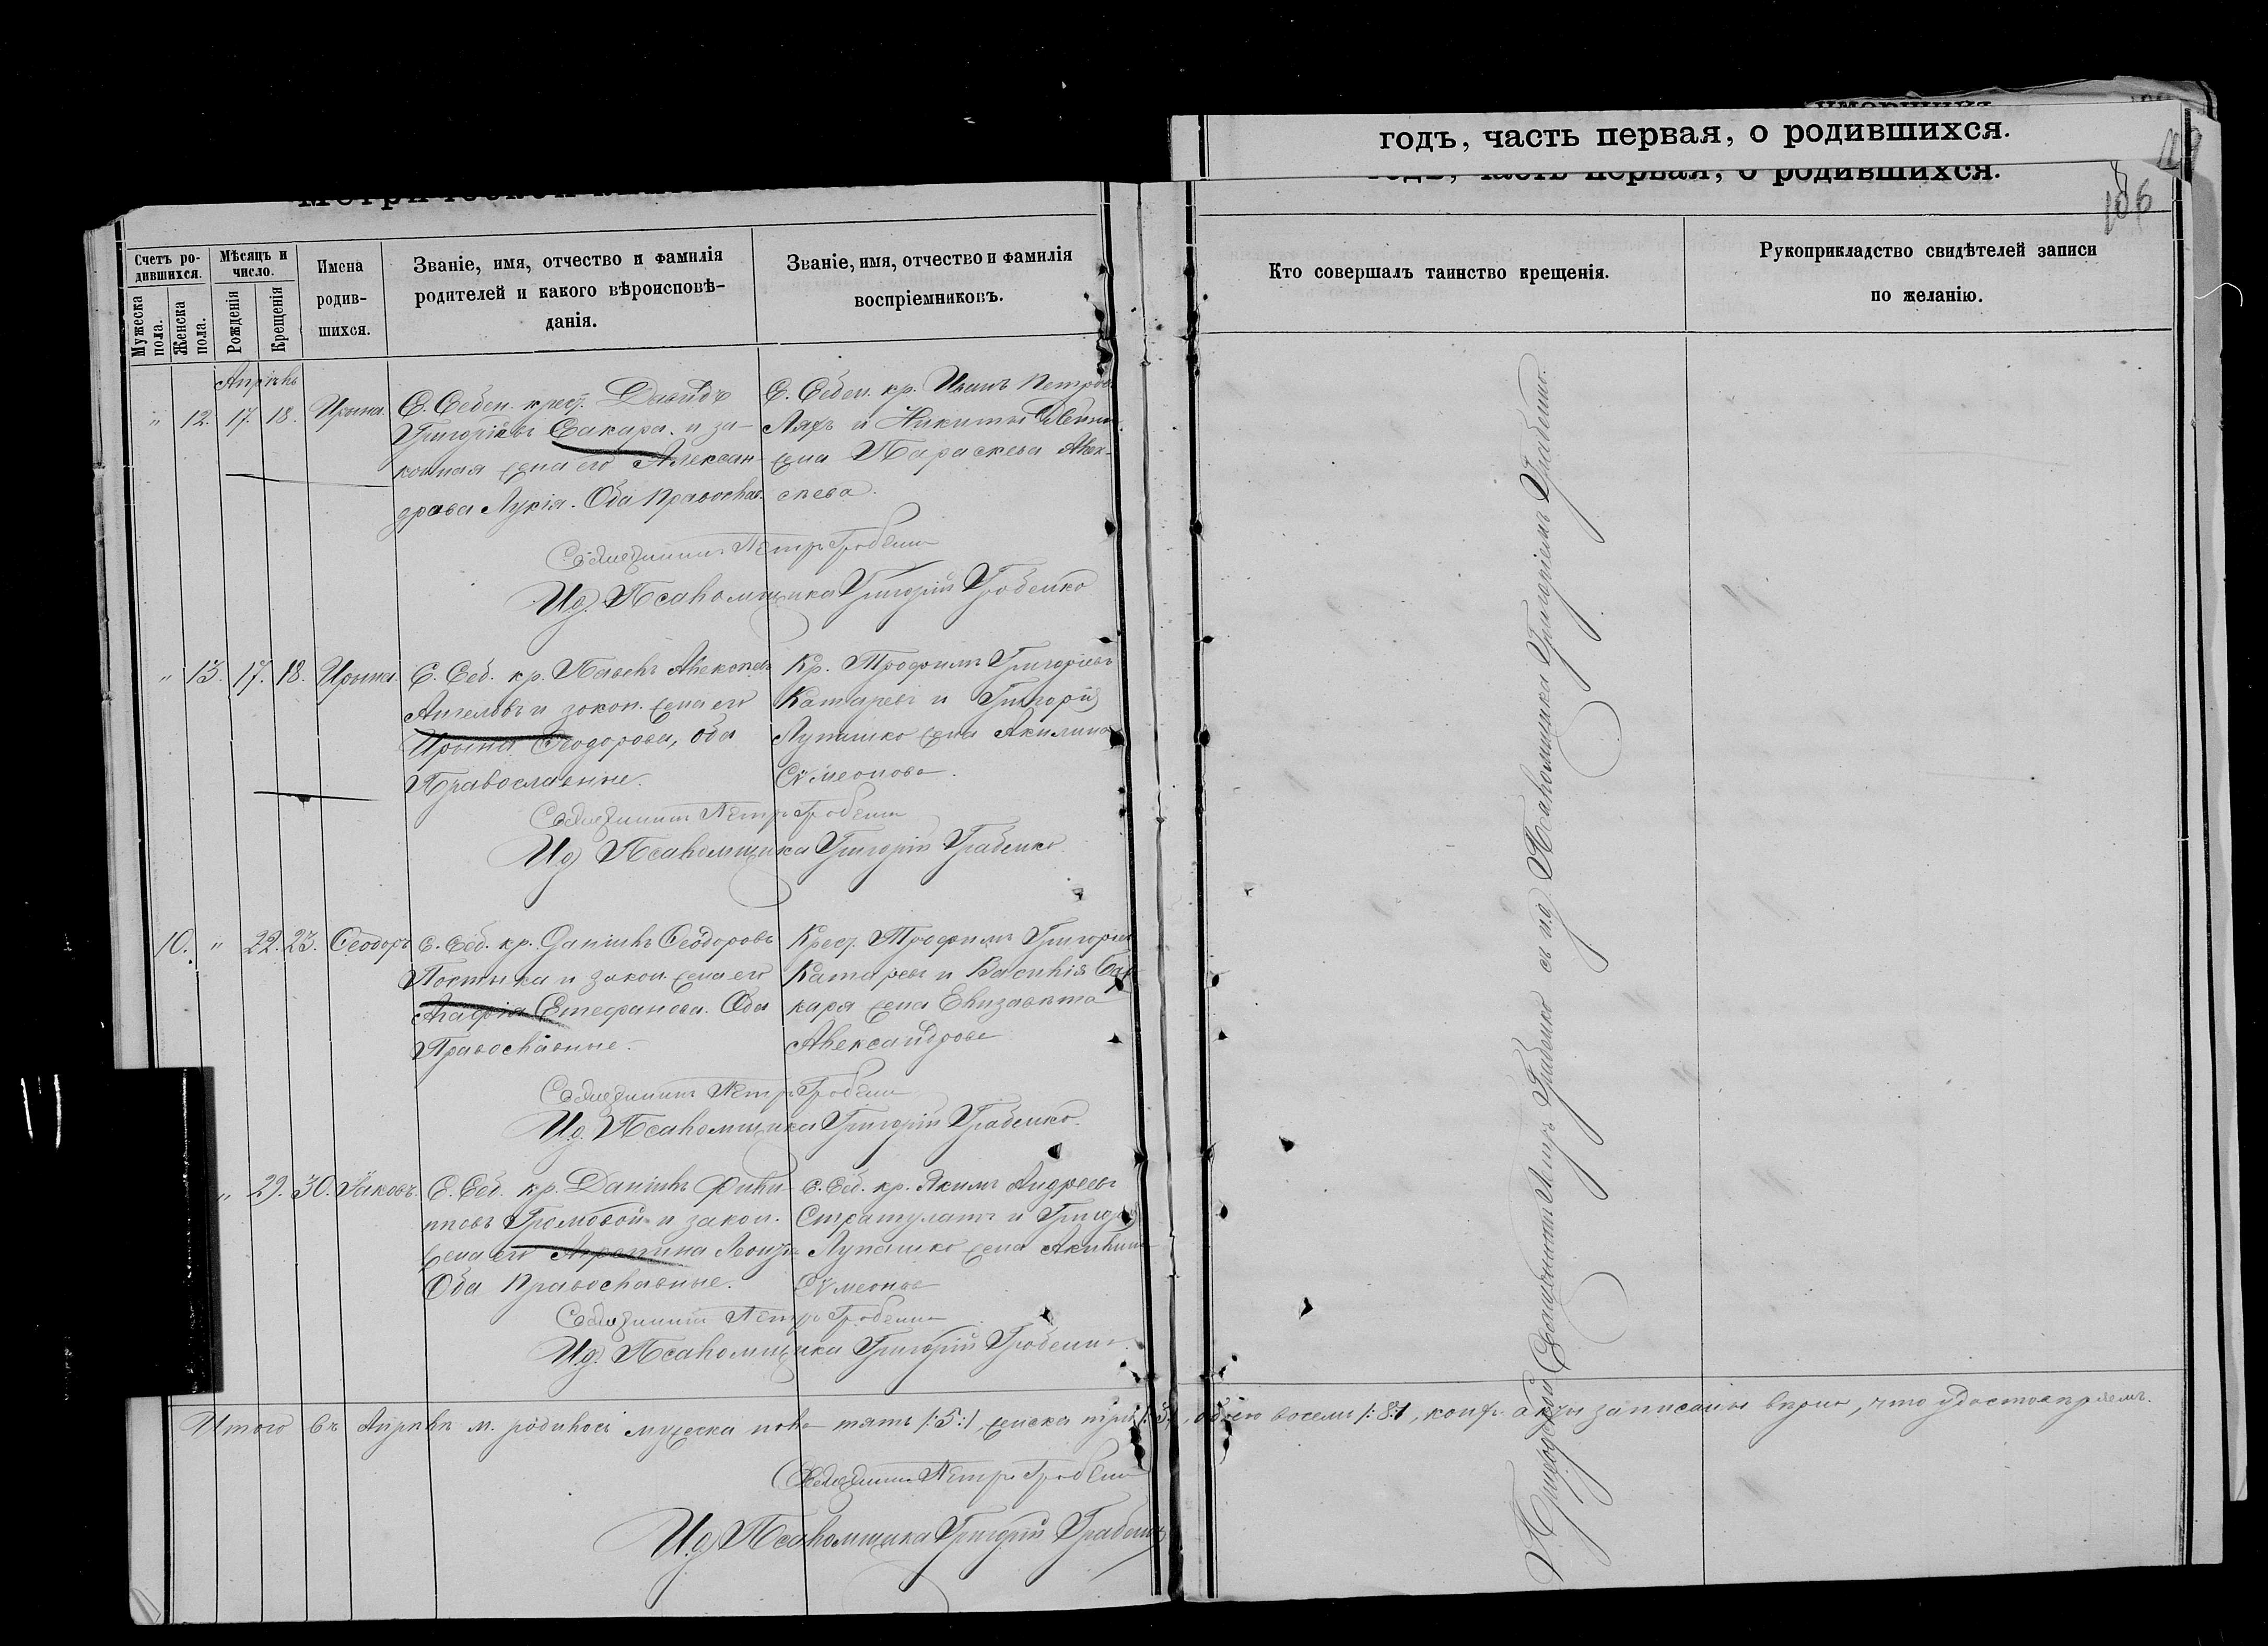 годъ, часть первая, о родившихся.
106
Счетъ ро-
дившихся.
Мужеска
пола.
Женска
пола.
Мѣсяцъ и
число.
Рожденія
Крещенія
Имена
родив-
шихся.
Званіе, имя, отчество и фамилія
родителей и какого вѣроисповѣ-
данія.
Званіе, имя, отчество и фамилія
воспріемниковъ.
Кто совершалъ таинство крещенія.
Рукоприкладство свидѣтелей записи
по желанію.
Апрѣль
" 12. 17. 18. Ирына.
С. Себен. крест. Давидъ
Григоріевъ Сакара. и за-
конная жена его Алексан-
драва Лукія. Оба Православ.
С. Себен. кр. Иванъ Петровъ
Ляхъ и Никиты
жена Параскева Алек-
сѣева.
Священникъ Петръ Грабенко
И.д. Псаломщика Григорій Грабенко
" 13. 17. 18. Ирына
С. Себ. кр. Павелъ Алексѣевъ
Ангеловъ и закон. жена его
Ирына Ѳеодорова, оба
Православные.
Кр. Трофимъ Григоріевъ
Катаревъ и Григорія
Лупашко жена Акилина
Сѵмеонова.
Священникъ Петръ Грабенко
И.д. Псаломщика Григорій Грабенко
10. " 22. 23. Ѳеодоръ
С. Себ. кр. Даніилъ Ѳеодоровъ
Постыка и закон. жена его
Агафія Стефанова. Оба
Православные.
Крест. Трофимъ Григоріевъ
Катаревъ и Василія Са-
кара жена Елизавета
Александрова
Священникъ Петръ Грабенко
И.д. Псаломщика Григорій Грабенко.
" 29. 30. Іаковъ.
С. Себ. кр. Даніилъ Фили-
пповъ Громовой и закон.
жена его
Оба Православные.
С. Себ. кр. Якимъ Андреевъ
Стратулатъ и Григорія
Лупашко жена Акилина
Сѵмеонова
Священникъ Петръ Грабенко
И.д. Псаломщика Григорій Грабенко.
Итого въ Апрѣлѣ м. родилось мужеска пола пять /:5:/, женска три /:3:/, обоего восемь /:8:/, акты записаны вѣрно, что удостовѣряемъ.
Священникъ Петръ Грабенко
И.д. Псаломщика Григорій Грабенко
Приходской Священникъ Петръ Грабенко съ и.д. Псаломщика Григоріемъ Грабенко.